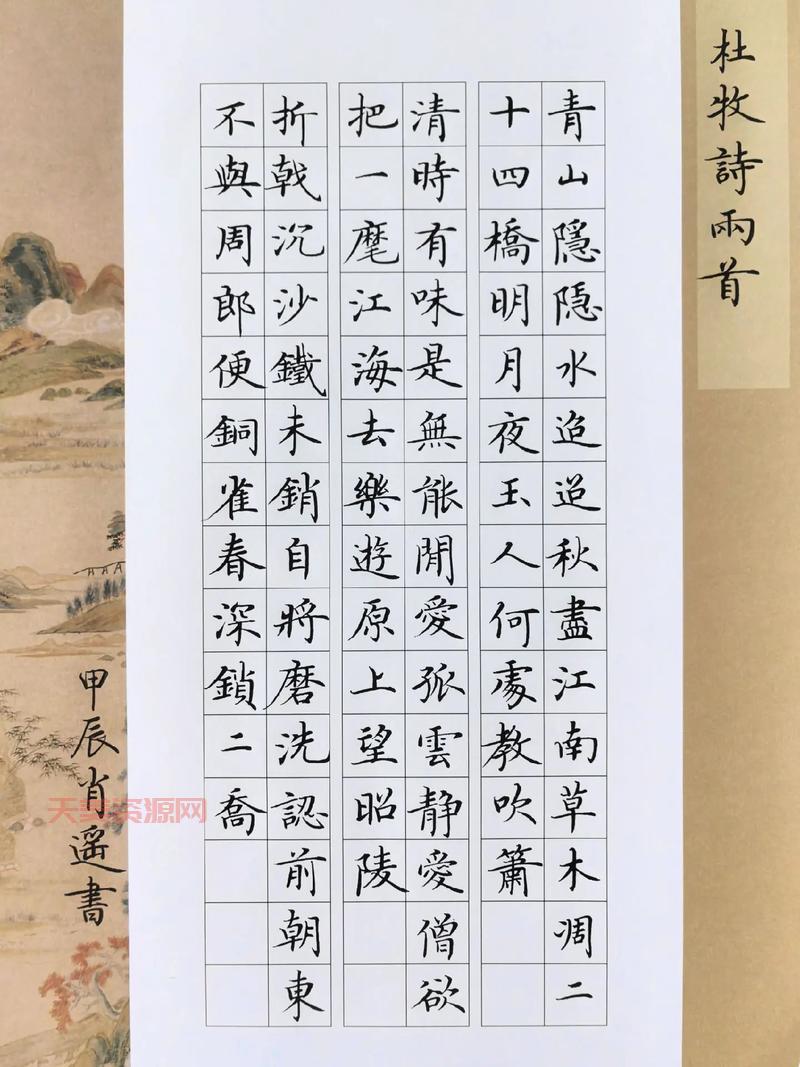 杜牧詩兩首
青山隱隱水迢迢秋盡江南草木凋二
十四橋明月夜玉人何處教吹簫
清時有味是無能閒愛孤雲静愛僧欲
把一麾江海去樂遊原上望昭陵
折戟沉沙鐵未銷自將磨洗認前朝東
不與周郎便銅雀春深鎖二喬
甲辰肖遥書
天美资源网